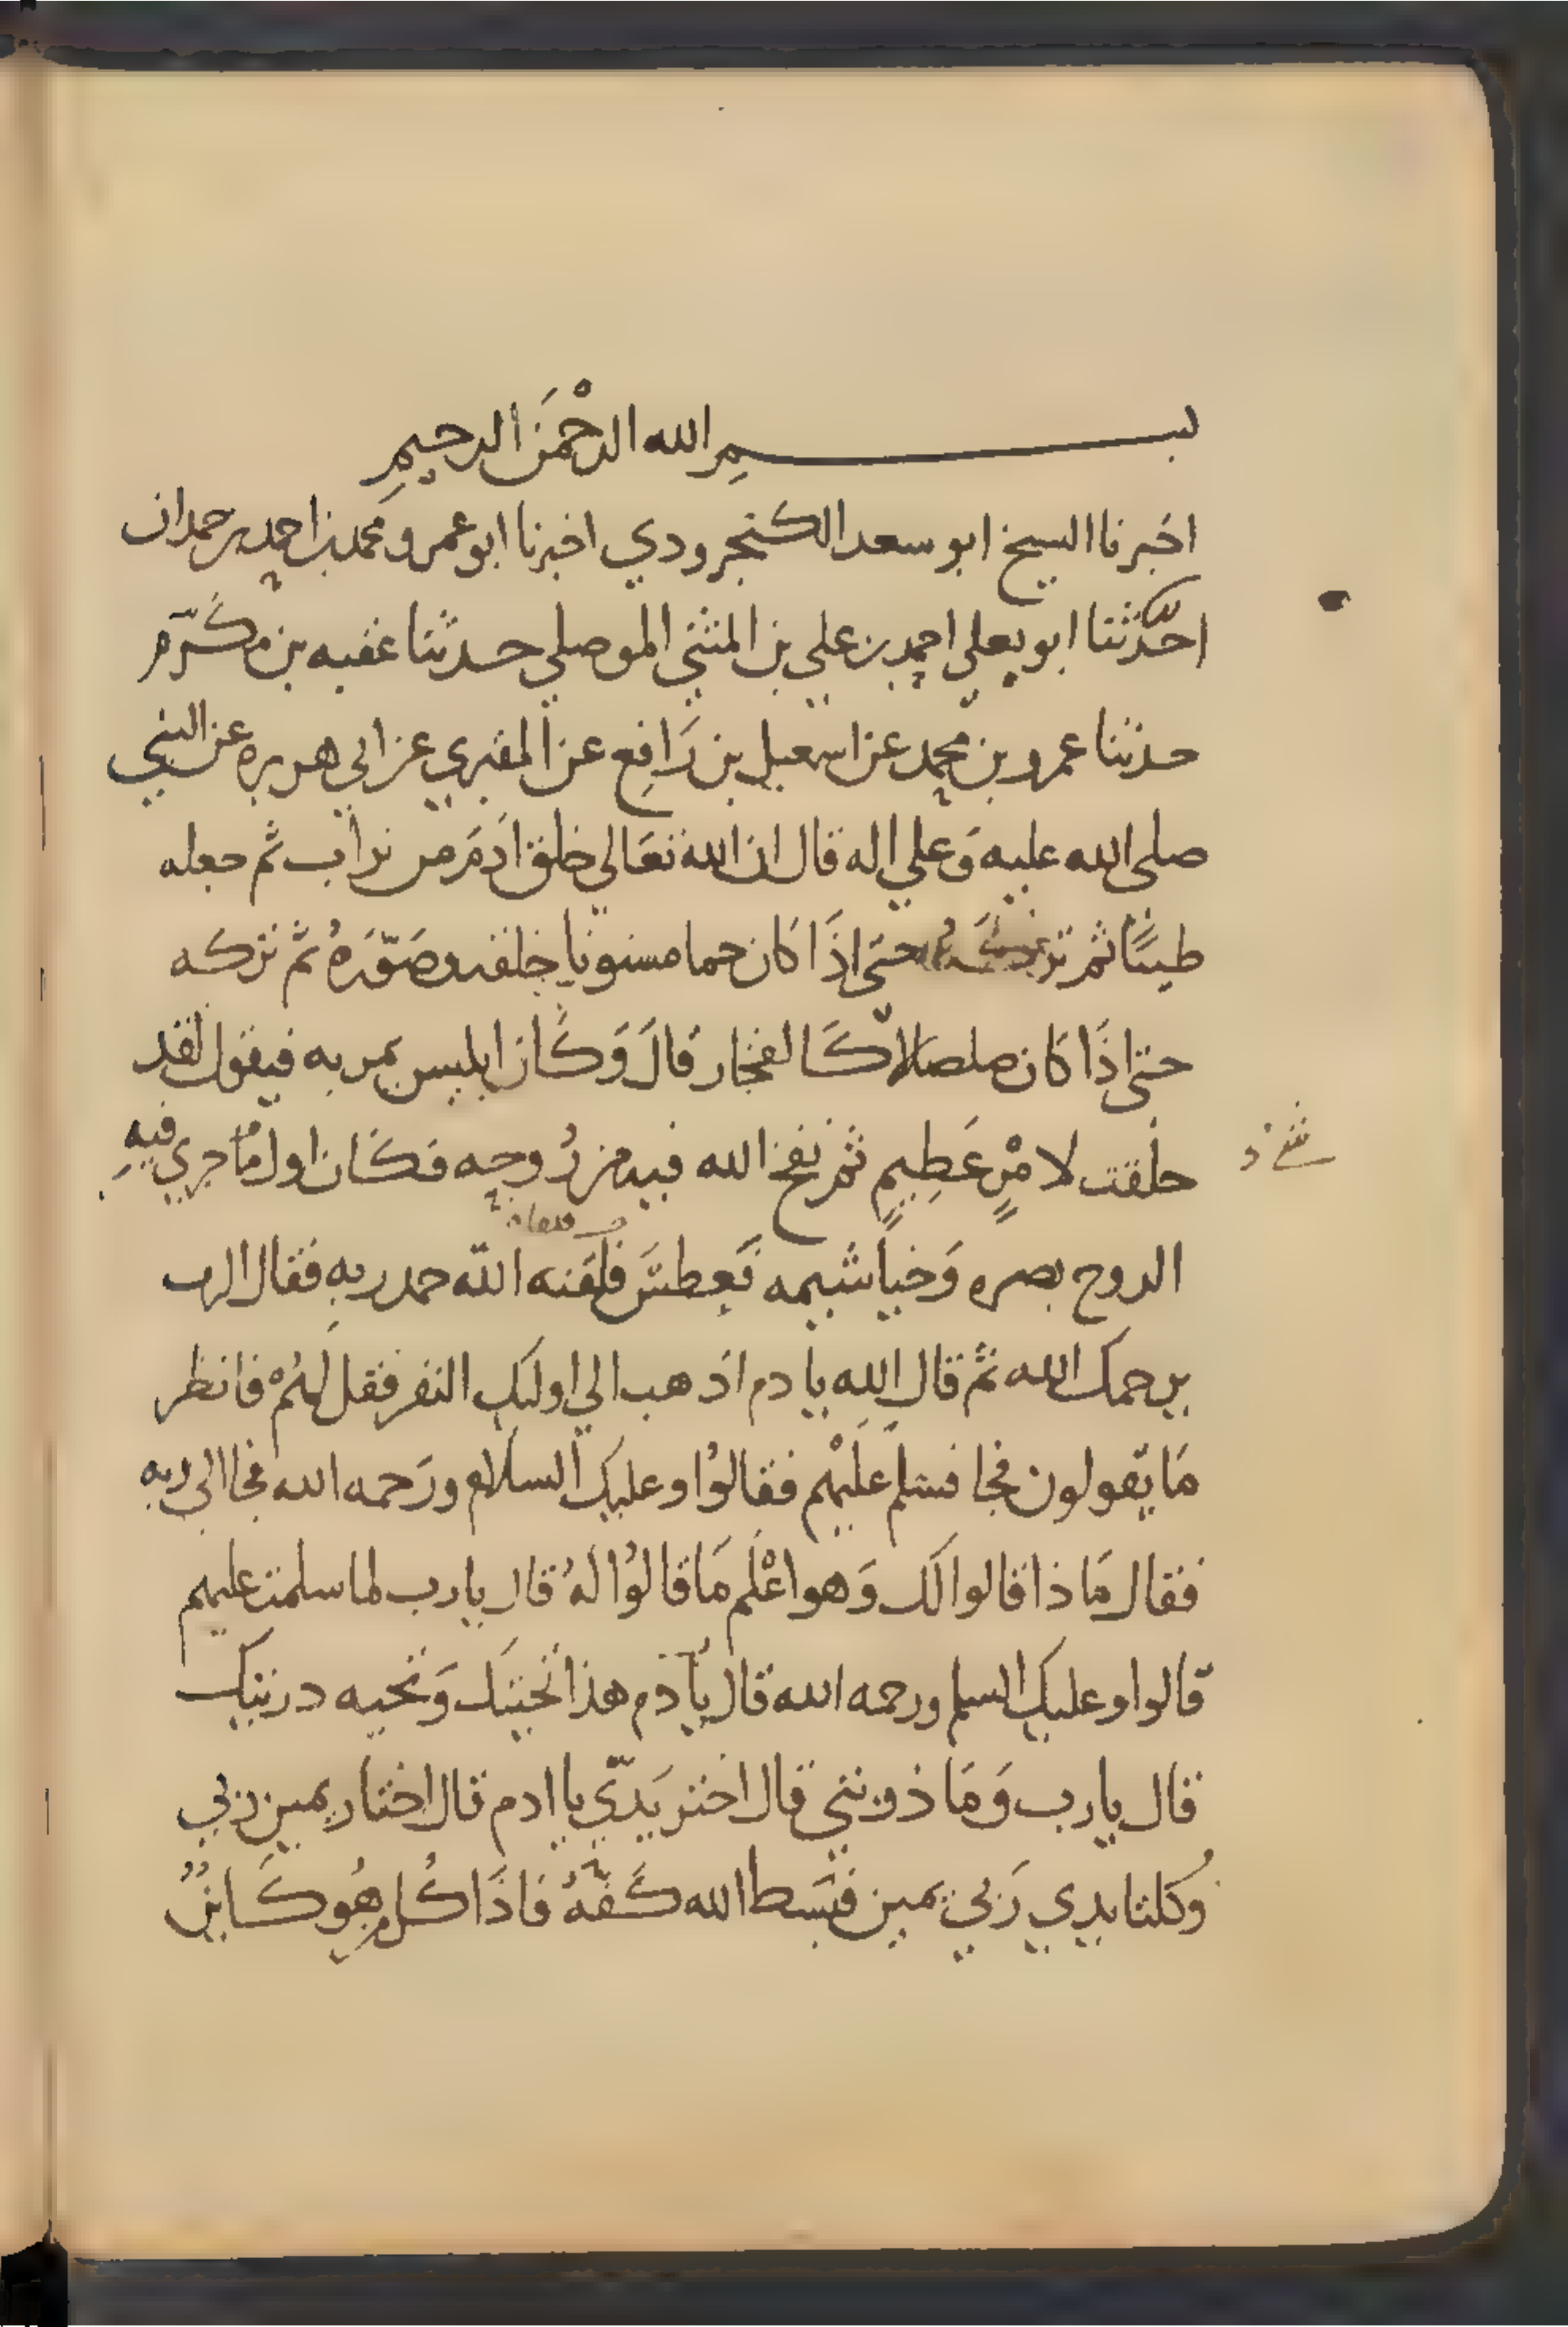 بسم الله الرحمن الرحيم
اخبرنا الشيخ ابو سعد الكنجرودي اخبرنا ابو عمرو محمد بن احمد بن حمدان
احدثنا ابو يعلي احمد بن علي بن المثني الموصلي حدثنا عقبه بن مكرم
حدثنا عمرو بن محمد عن اسمعيل بن رافع عن المقبري عن ابي هريره عن النبي
صلى الله عليه وعلي اله قال ان الله تعالي خلق ادم من تراب ثم جعله
طينا ثم تركه حتى اذا كان حما مسنونا خلقه وصوره ثم تركه
حتى اذا كان صلصالا كالفخار قال وكان ابليس يمر به فيقول لقد
خلقت لامر عظيم ثم نفخ الله فيه من روحه فكان اول ما جري فيه
الروح بصره وخياشيمه فعطس فلقنه الله حمد ربه فقال الرب
يرحمك الله ثم قال الله يادم اذهب الي اوليك النفر فقل لهم فانظر
ما يقولون فجا فسلم عليهم فقالوا وعليك السلام ورحمه الله فجا الي ربه
فقال ماذا قالوا لك وهو اعلم ما قالوا له قال يارب لما سلمت عليهم
قالوا وعليك السلم ورحمه الله قال يآدم هذا تحيتك وتحيه ذريتك
قال يارب وما ذريتي قال اختر يدي يا ادم قال اختار يمين ربي
وكلتا يدي ربي يمين فبسط الله كفه فاذا كل من هو كاين